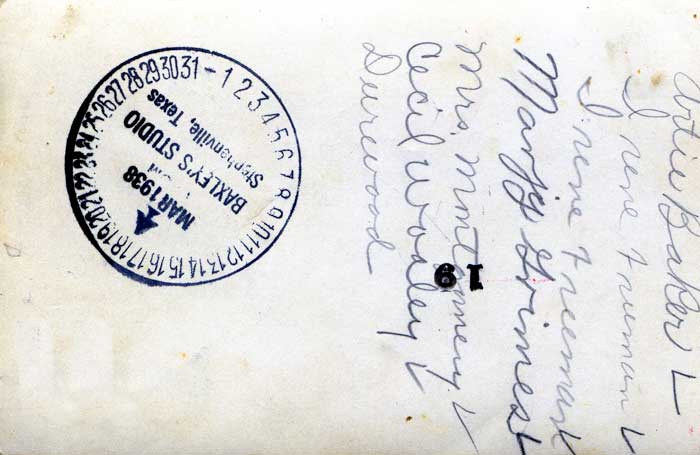 Baker
Irene Freeman
Irene Freeman
Margy Grimes
Mrs. Montgomery
Cecil Wooley
Durwood
19
1 2 3 4 5 6 7 8 9 10 11 12 13 14 15 16 17 18 19 20 21 22 23 24 25 26 27 28 29 30 31
MAR 1938
BAXLEY'S STUDIO
Stephenville, Texas